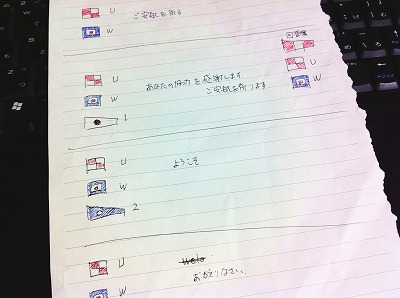 U ご安航を祈る
W
回答旗
U あなたの協力を感謝します U
W ご安航を祈ります W
1
U ようこそ
W
2
U
おかえりなさい。
W